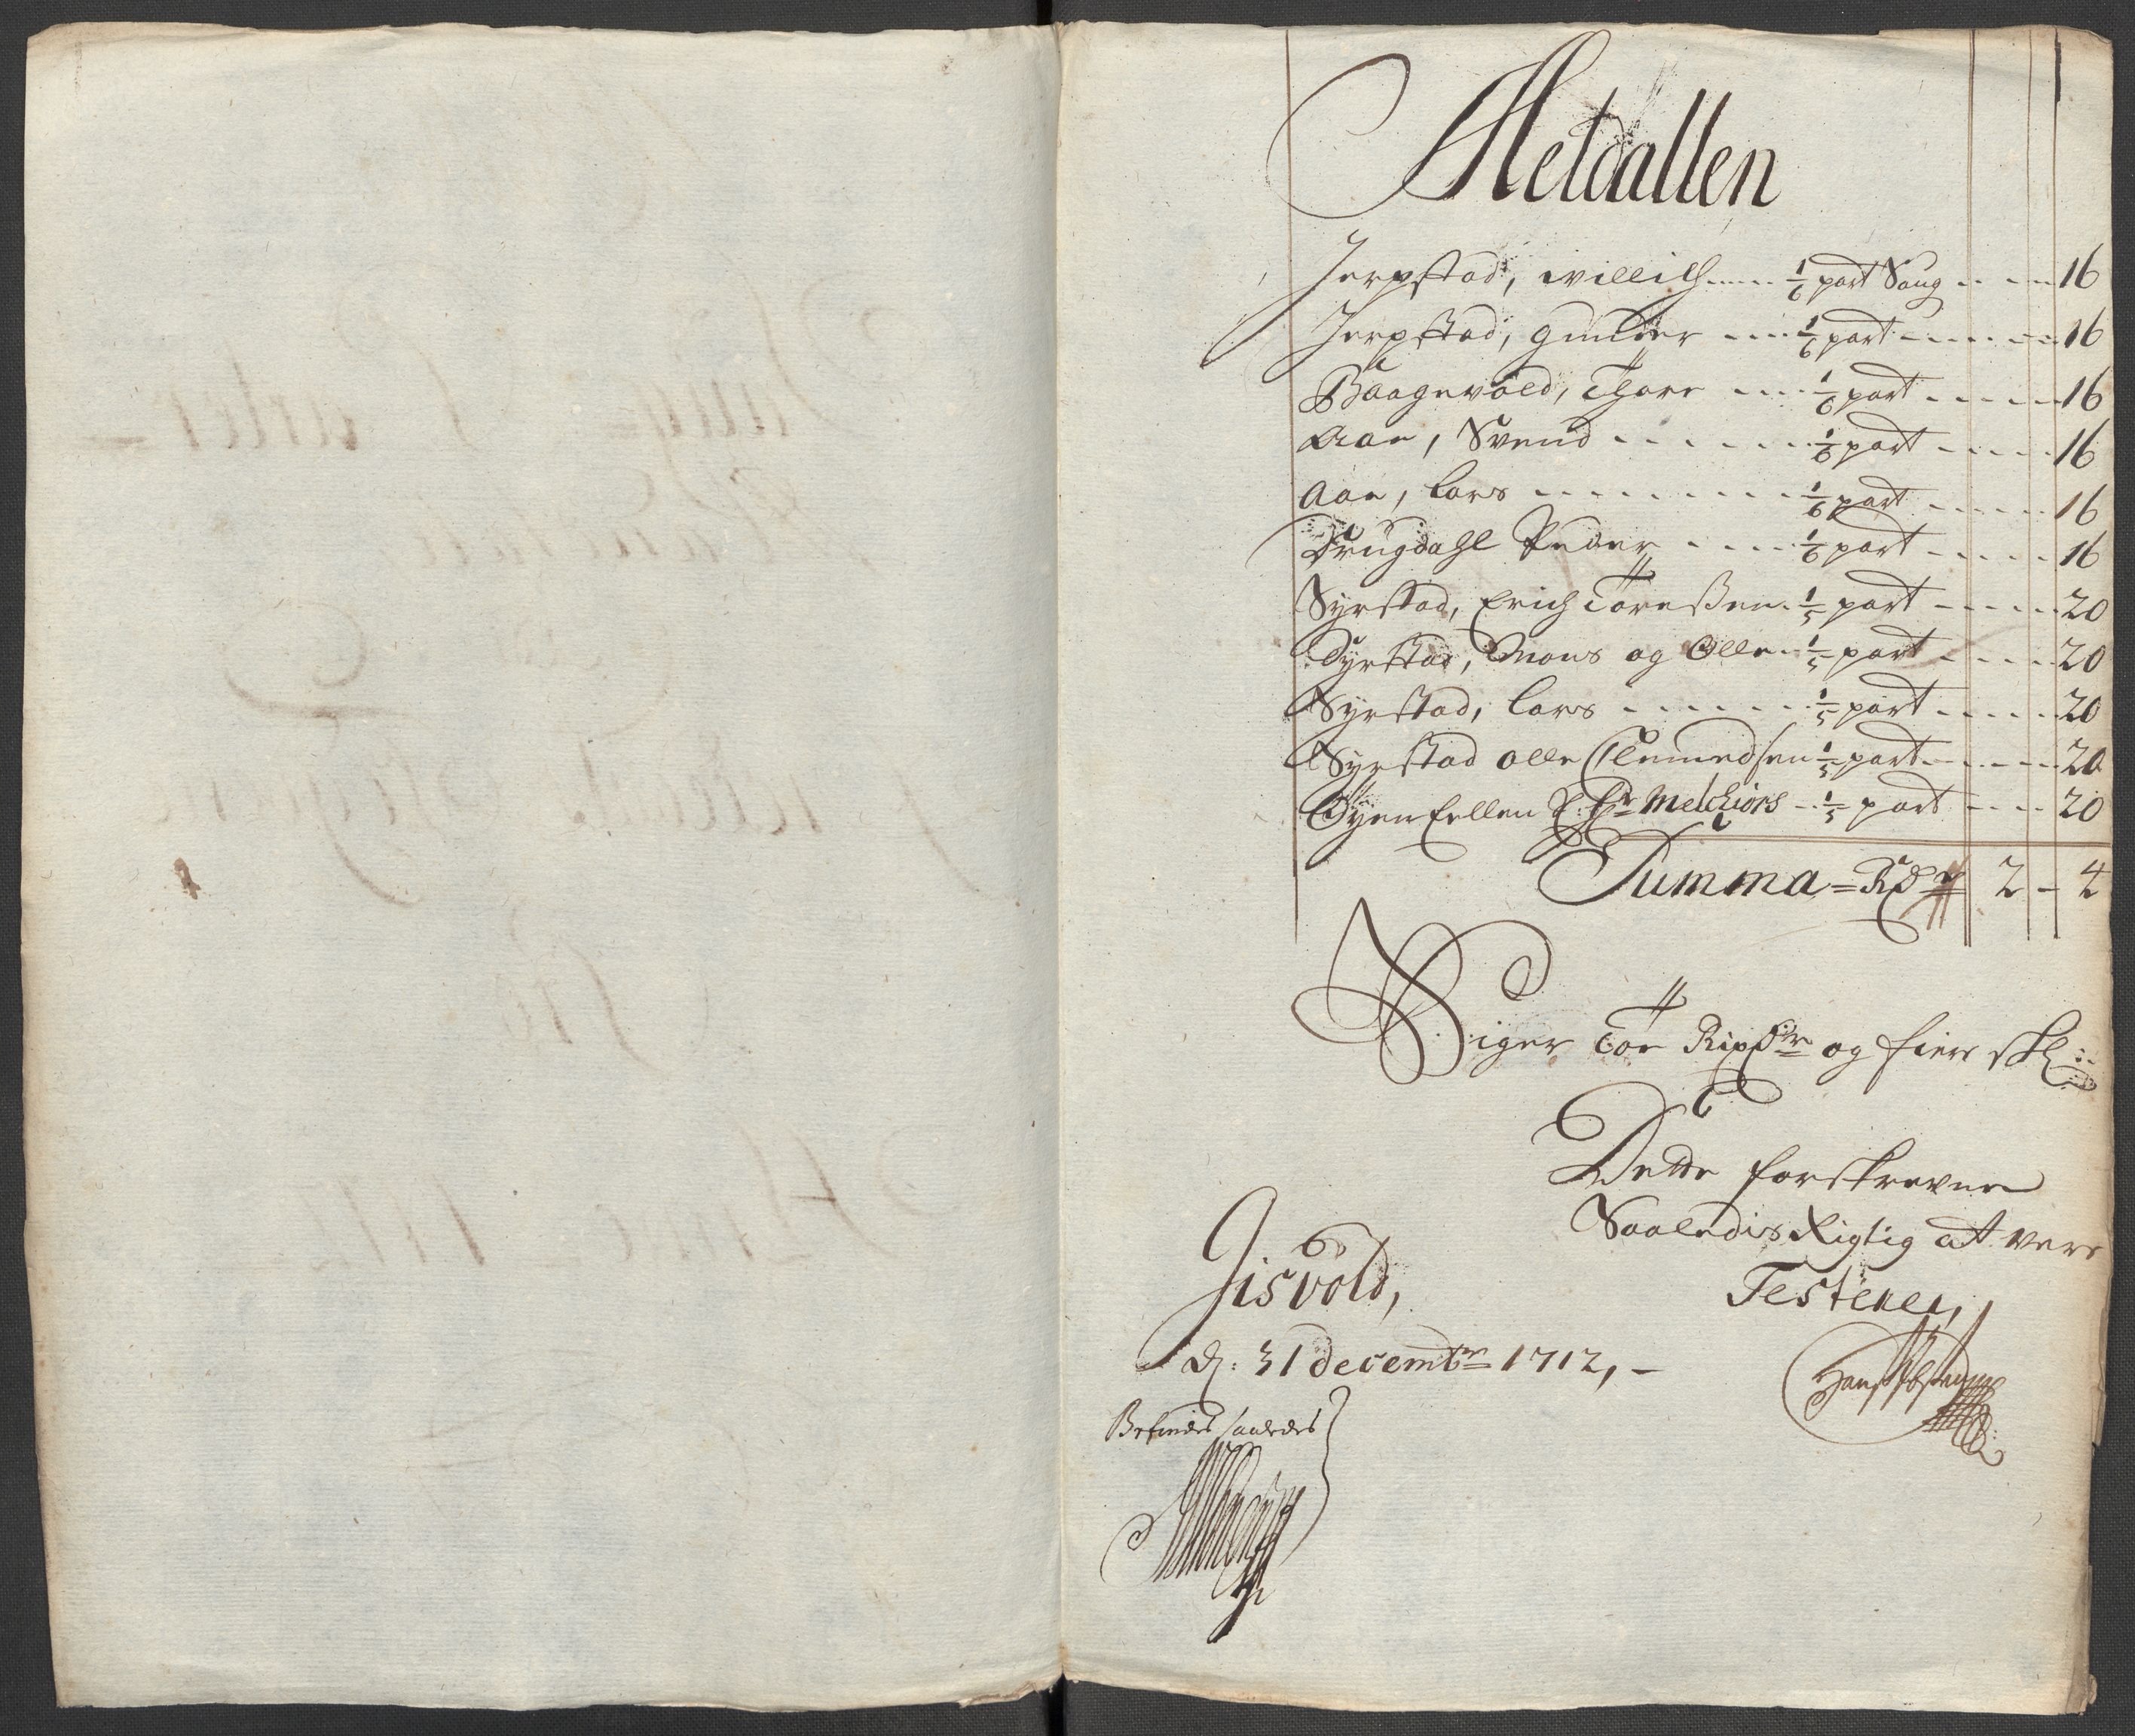 Meldallen
Jerpstad, Willich ...... 1/6 part Saug .. .. 16
Jerpstad, Gunder .... 1/6 part ....... 16
Baagevold, Thore .... 1/6 part ...... 16
Aae, Svend ....... 1/6 part ..... 16
Aae, Lars ......... 1/6 part ...... 16
Drugdahl Peder ..... 1/6 part ..... 16
Syrstad, Erich Toreßen. 1/5 part ..... 20
Syrstad, Mons og Olle .. 1/5 part .... 20
Syrstad, Lars ....... 1/5 part ..... 20
Syrstad Olle Clemedsen 1/5 part ...... 20
Øyen Melchiors .. 1/5 part .... 20
Summa = Rdr 2 - 4
Siger Toe Rixdr og fiere skl
Dette forskrevne
Saaledis Rigtig at vere
Testerer,
Gisvold,
d: 31 decembr 1712, -
Hans
Befindes saaledes